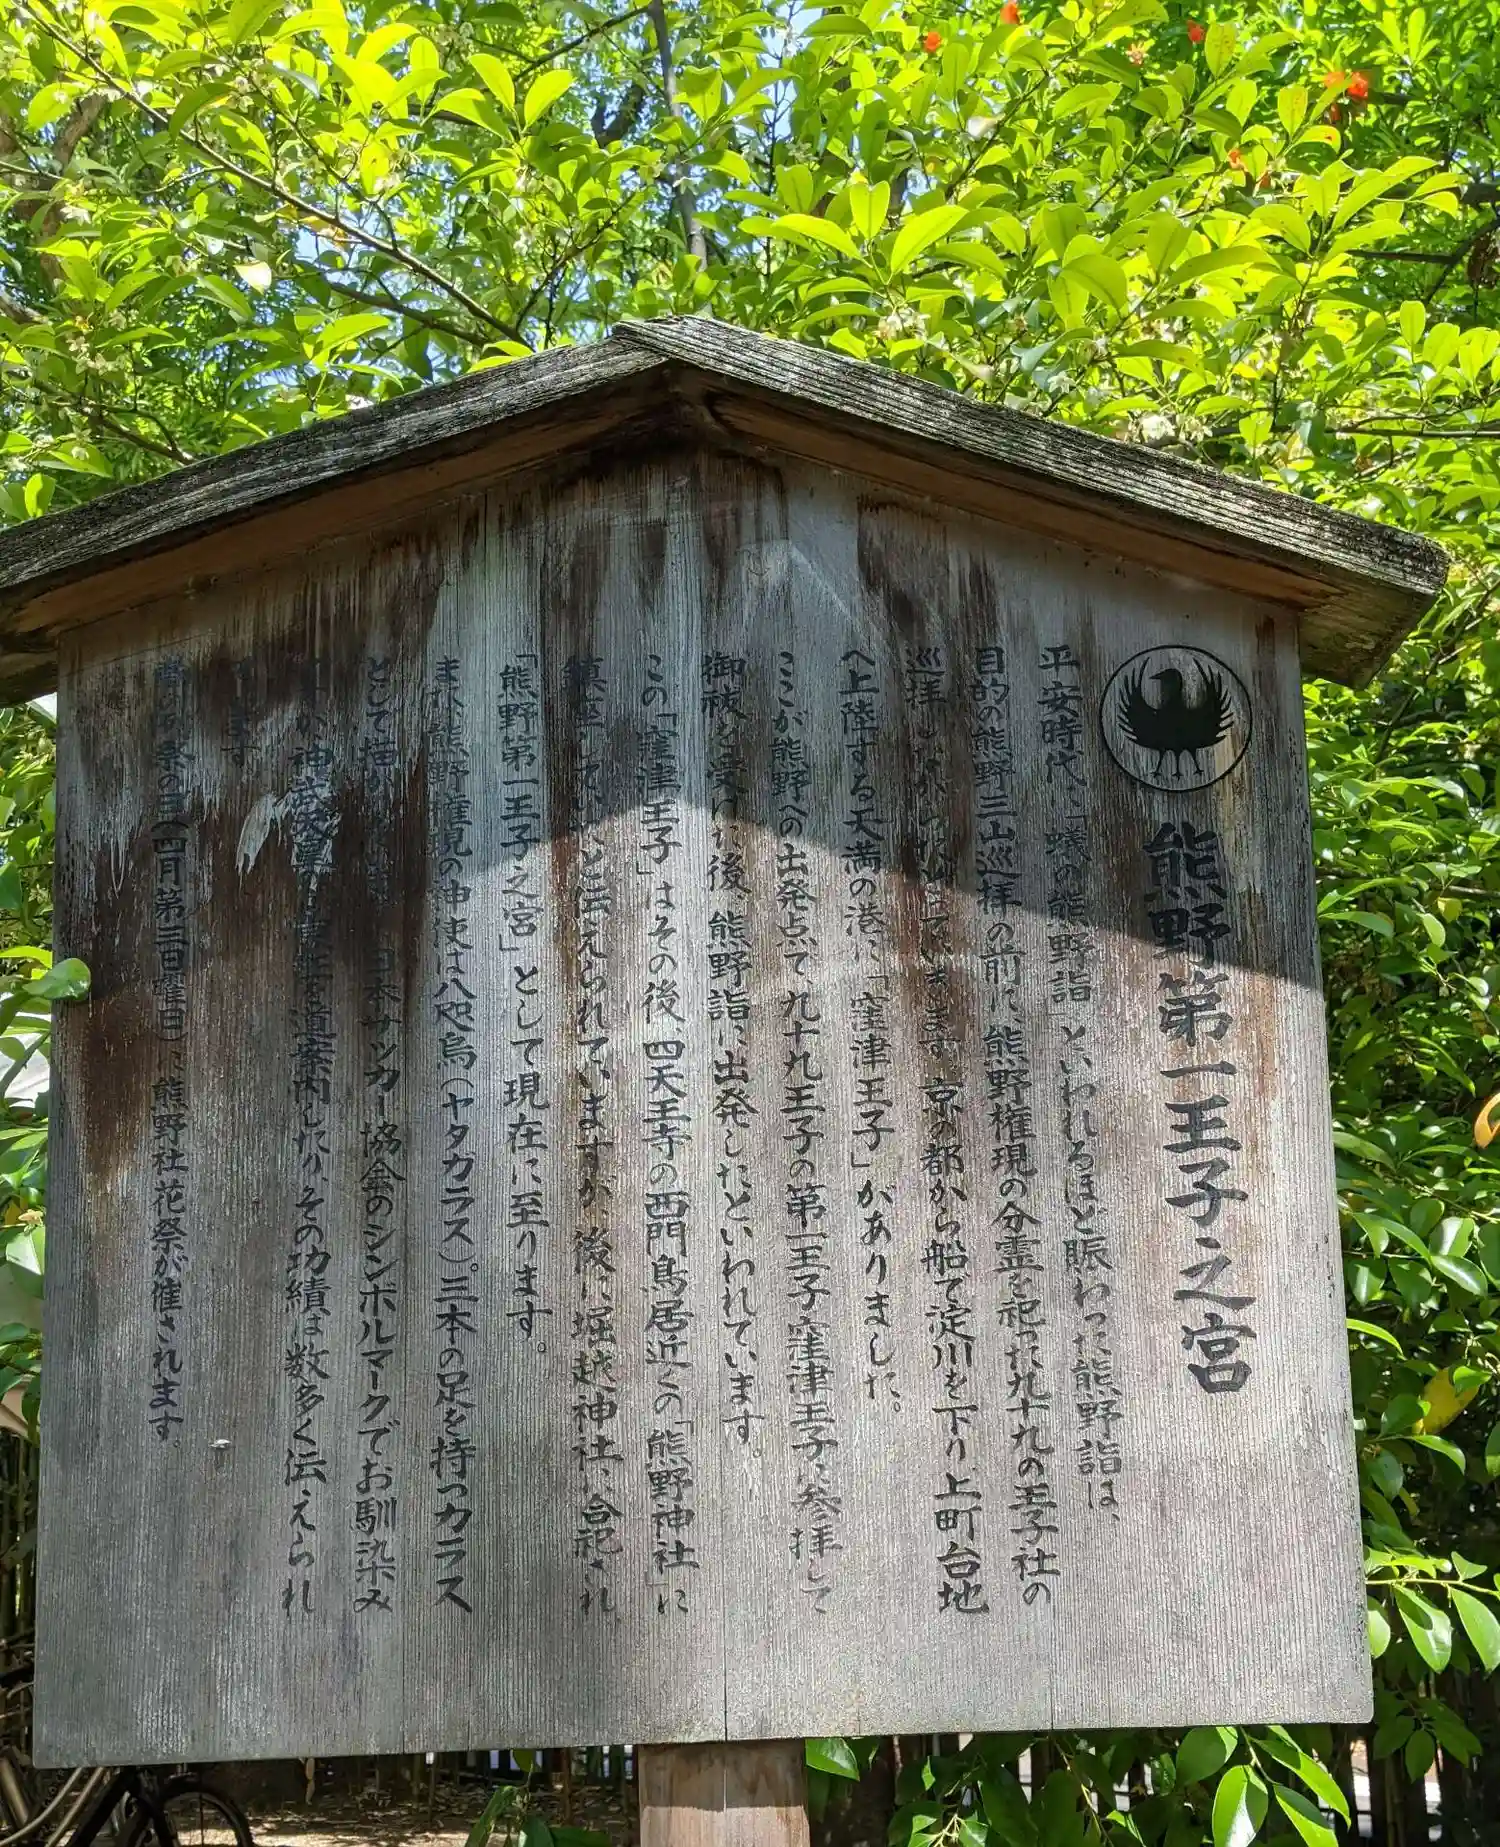 熊野第一王子之宮
平安時代に「蟻の熊野詣」といわれるほど賑わった熊野詣は、
目的の熊野三山巡拝の前に、熊野権現の分霊を祀った九十九の王子社の
巡拝しながら ています。京の都から船で淀川を下り、上町台地
へ上陸する天満の港に「窪津王子」がありました。
ここが熊野への出発点で、九十九王子の第一王子窪津王子に参拝して
御祓を受けた後、熊野詣に出発したといわれています。
この「窪津王子」はその後、四天王寺の西門鳥居近くの「熊野神社」に
鎮座していたと伝えられていますが、後に堀越神社に合祀され
「熊野第一王子之宮」として現在に至ります。
また、熊野権現の神使は八咫烏(ヤタガラス)。三本の足を持つカラス
として描かれ 日本サッカー協会のシンボルマークでお馴染み
ですが、神武天皇の東征を道案内したり、その功績は数多く伝えられ
ています
春の例祭の日(四月第三日曜日)に熊野社花祭が催されます。